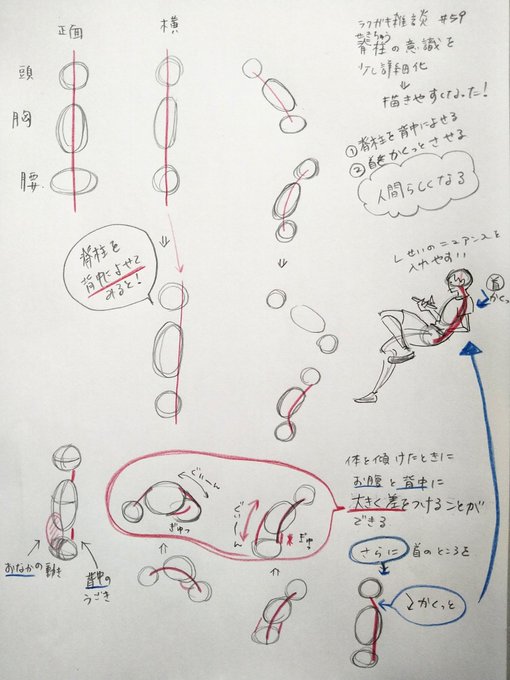 正面
横
頭
胸
腰
ラクガキ雑談 #59
せきちゅう
脊柱の意識を
少し詳細化
⇓
描きやすくなった!
①脊柱を背中によせる
②首をかくっとさせる
人間らしくなる
脊柱を
背中によせて
みると!
しせいのニュアンスを
入れやすい
首
かくっ
体を傾けたときに
お腹と背中に
大きく差をつけることが
できる
ぐぃーん
ぎゅっ
ぐぃーん
ぎゅっ
さらに 首のところを
かくっと
おなかの動き
背中の
うごき